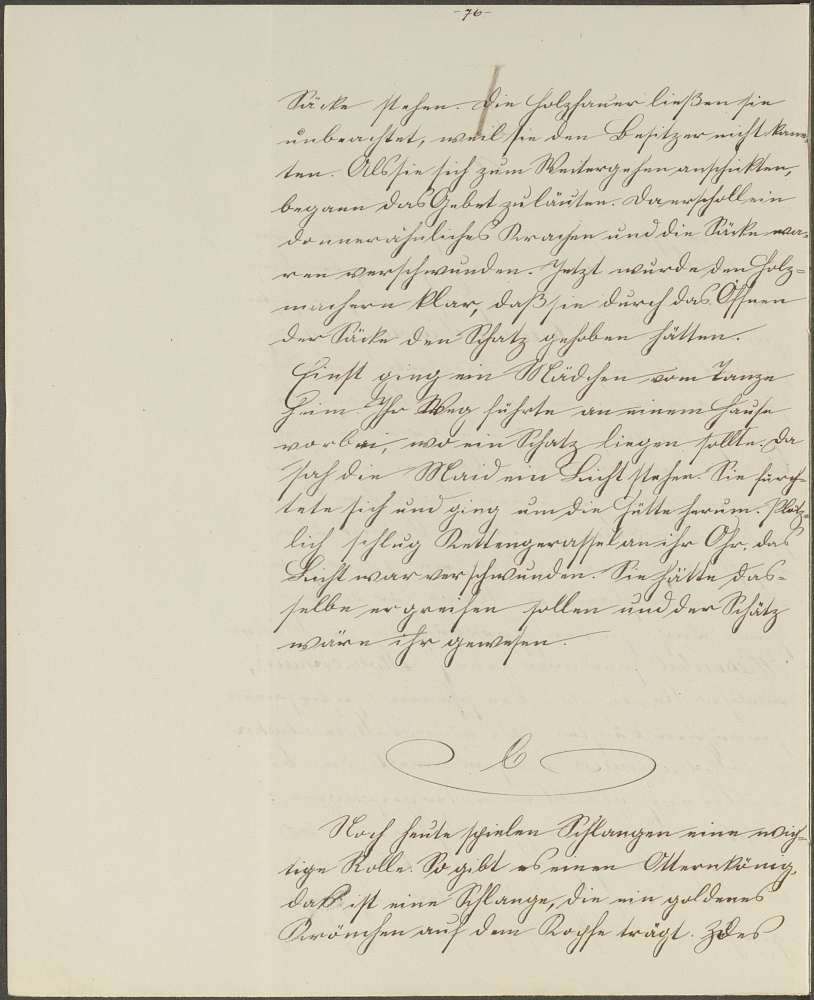 -76-
Säcke stehen. Die Holzhauer ließen sie
unbeachtet, weil sie den Besitzer nicht kann-
ten. Als sie sich zum Weitergehen anschickten,
begann das Gebet zu läuten. Da erscholl ein
donnerähnliches Krachen und die Säcke wa-
ren verschwunden. Jetzt wurde den Holz-
machern klar, daß sie durch das Öffnen
der Säcke den Schatz gehoben hätten.
Einst ging ein Mädchen vom Tanze
heim. Ihr Weg führte an einem Hause
vorbei, wo ein Schatz liegen sollte. Da
sah die Maid ein Licht stehen. Sie fürch-
tete sich und ging um die Hütte herum. Plötz-
lich schlug Kettengerassel an ihr Ohr, das
Licht war verschwunden. Sie hätte das-
selbe ergreifen sollen und der Schatz
wäre ihr gewesen.
C
Noch heute spielen Schlangen eine wich-
tige Rolle. So gibt es einen Otternkönig,
das ist eine Schlange, die ein goldenes
Krönchen auf dem Kopfe trägt.